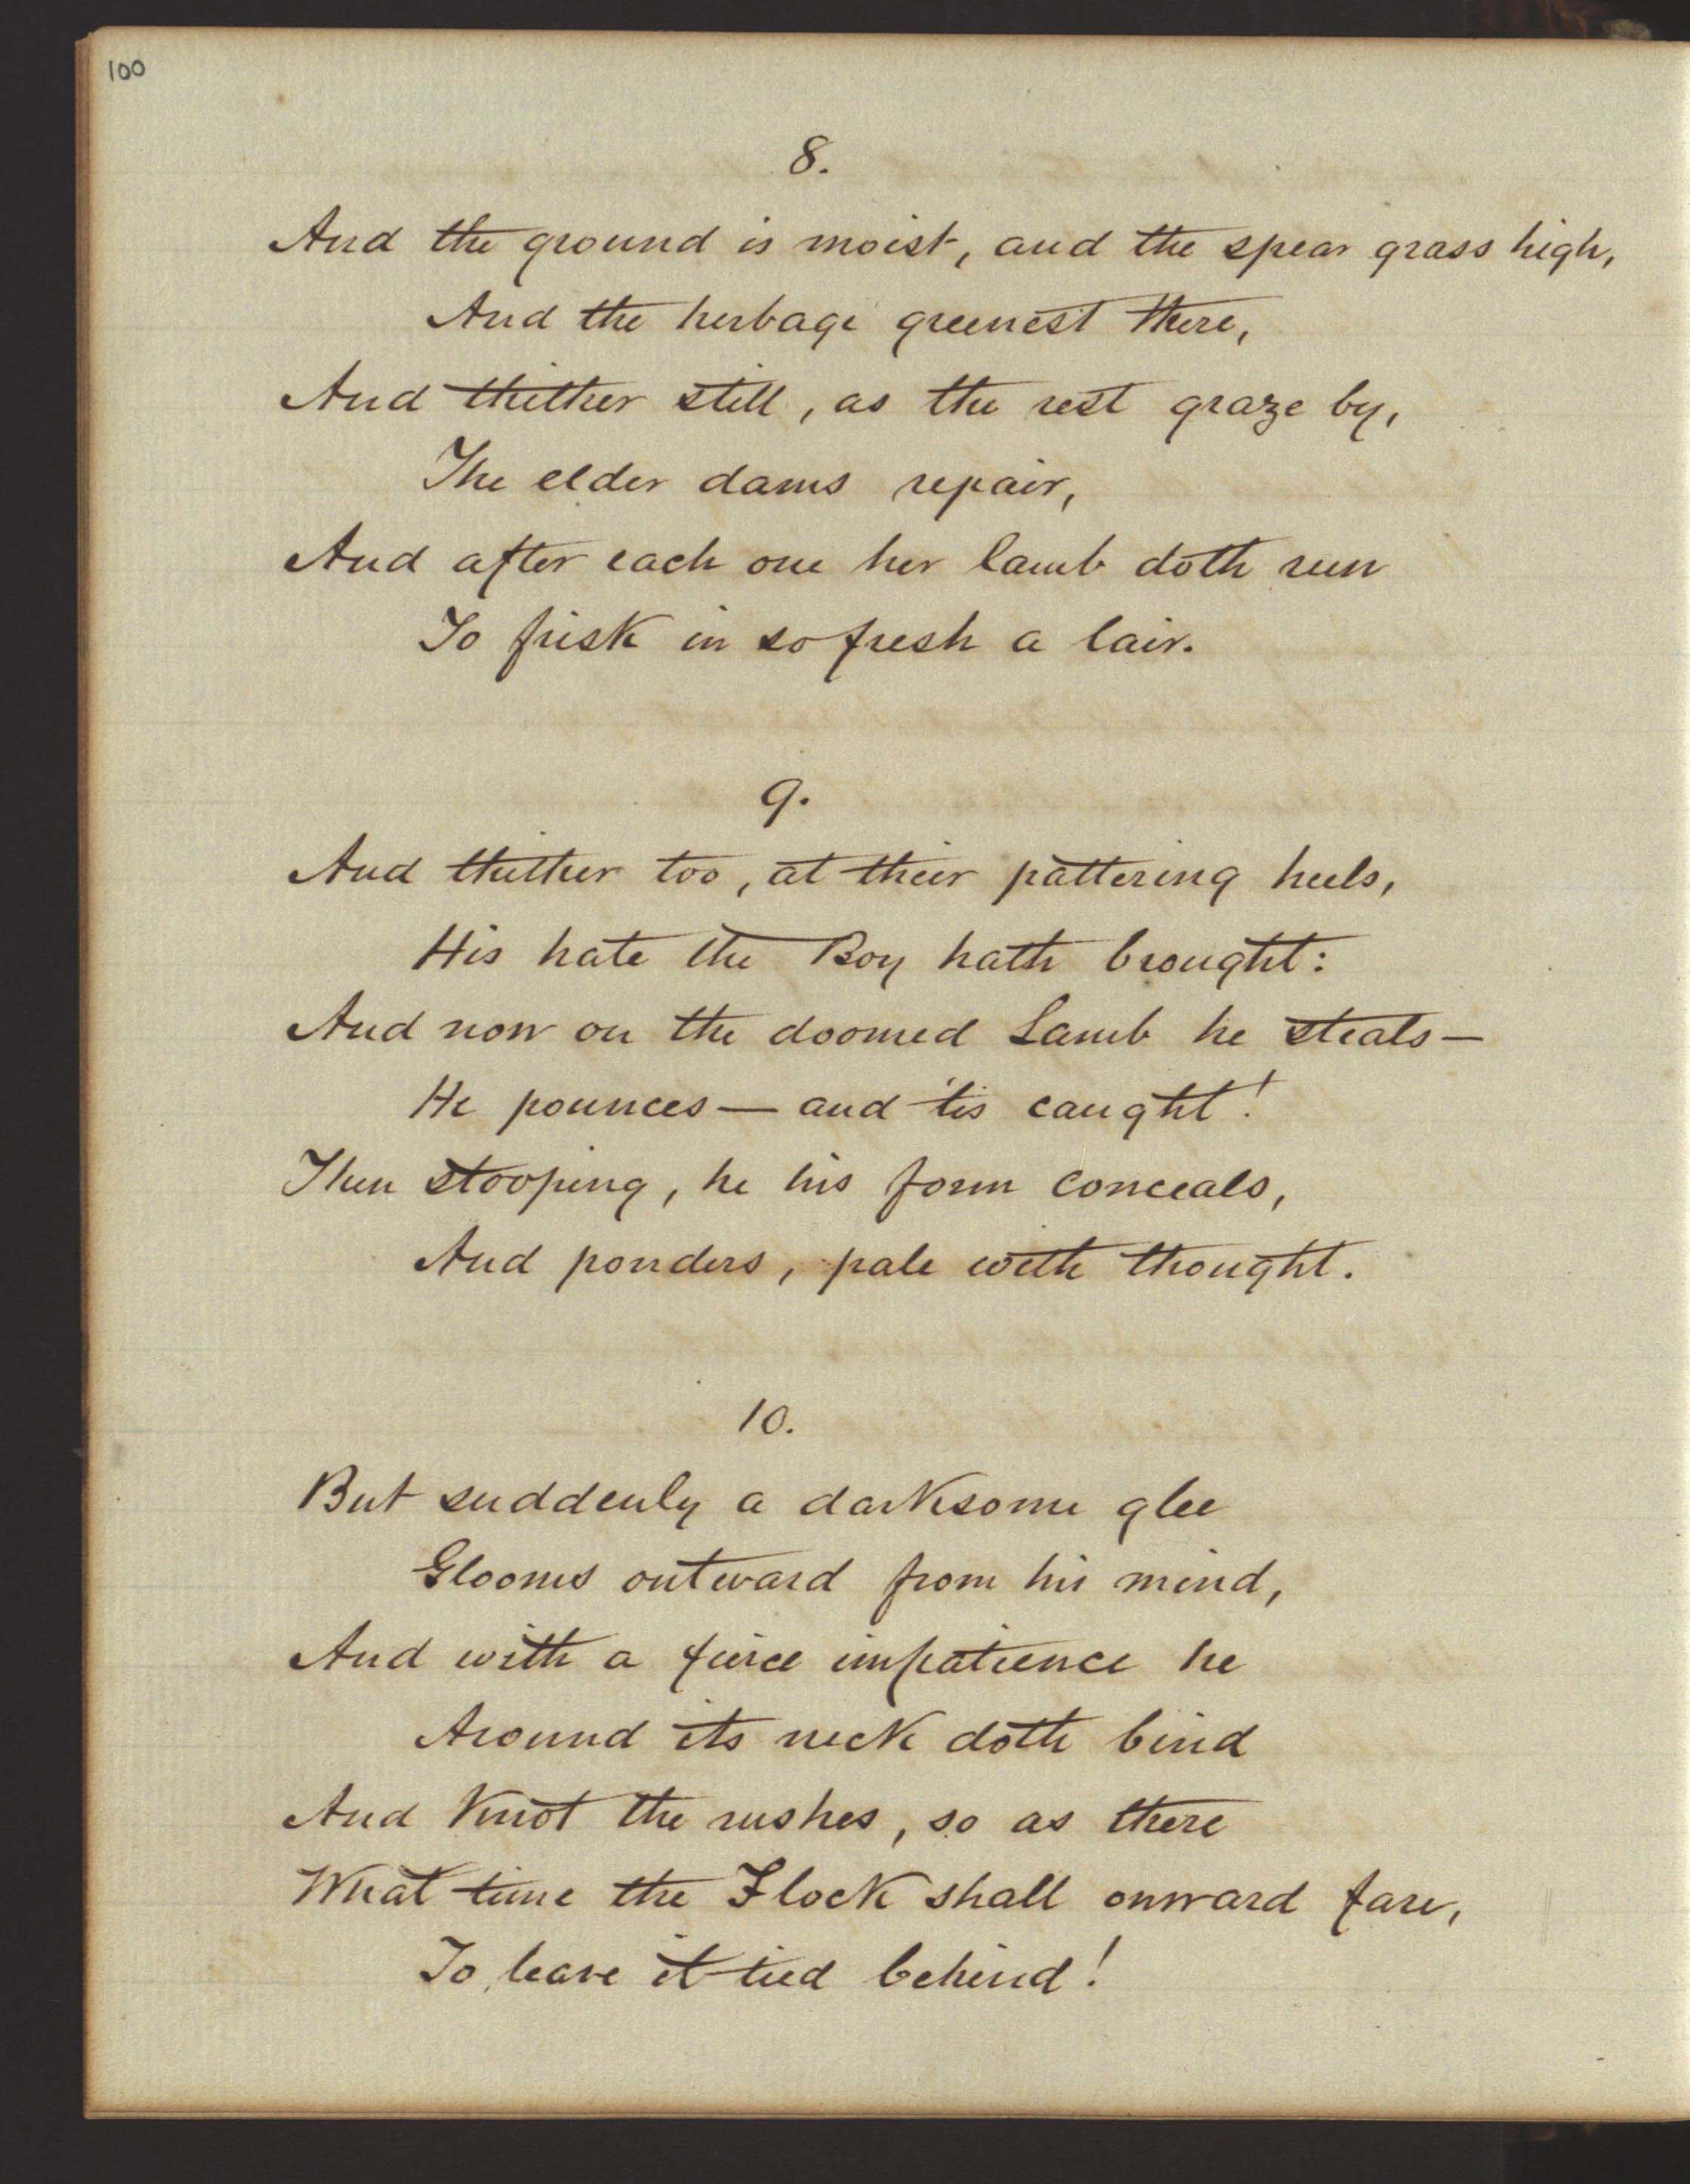 100
8.
And the ground is moist, and the spear grass high,
And the herbage greenest there,
And thither still, as the rest graze by,
The elder dams repair,
And after each one her lamb doth run
To frisk in so fresh a lair.
9.
And thither too, at their pattering heels,
His hate the Boy hath brought:
And now on the doomed Lamb he steals—
He pounces—and 'tis caught!
Then stooping, he his form conceals,
And ponders, pale with thought.
10.
But suddenly a darksome glee
Glooms outward from his mind,
And with a fierce impatience he
Around its neck doth bind
And Knot the rushes, so as there
What time the Flock shall onward fare,
To leave it tied behind!